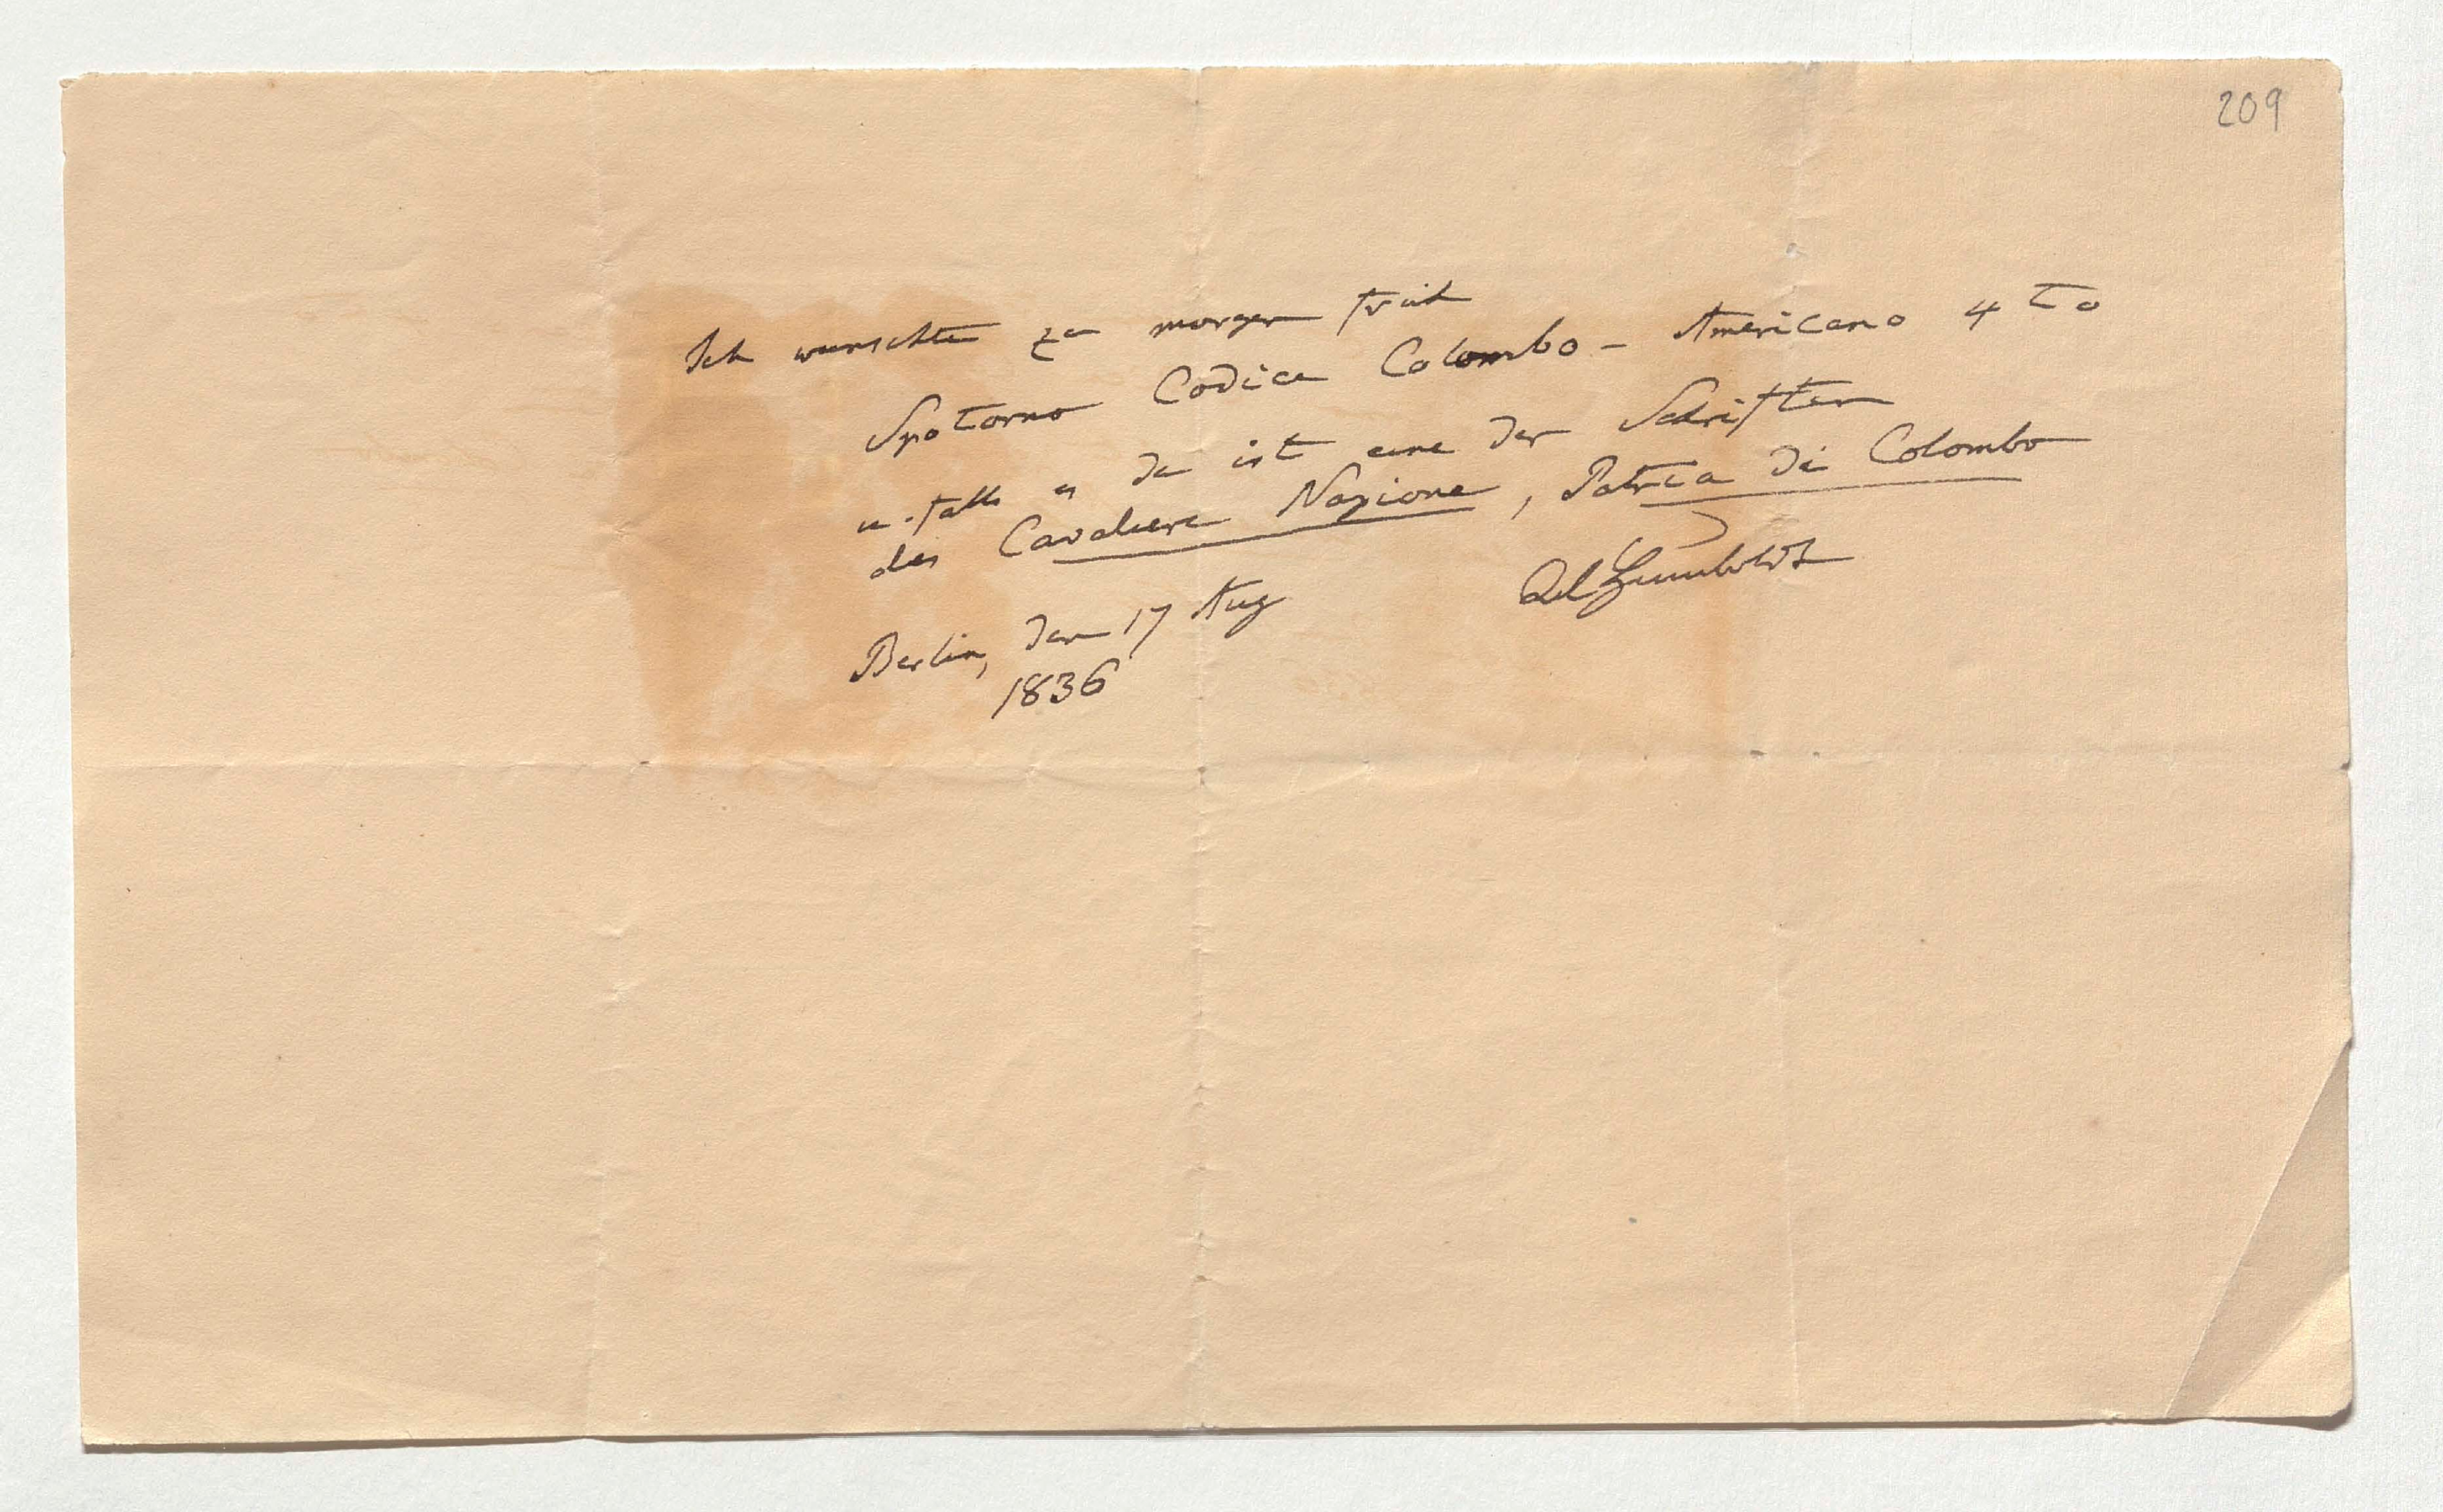 209
Ich wunschte zu morgen früh
Spotorno Codice Colombo-Americano 4to
u. falls es da ist eine der Schriften
des Cavaliere Napione, Patria di Colombo
AlHumboldt
Berlin, den 17 Aug
1836